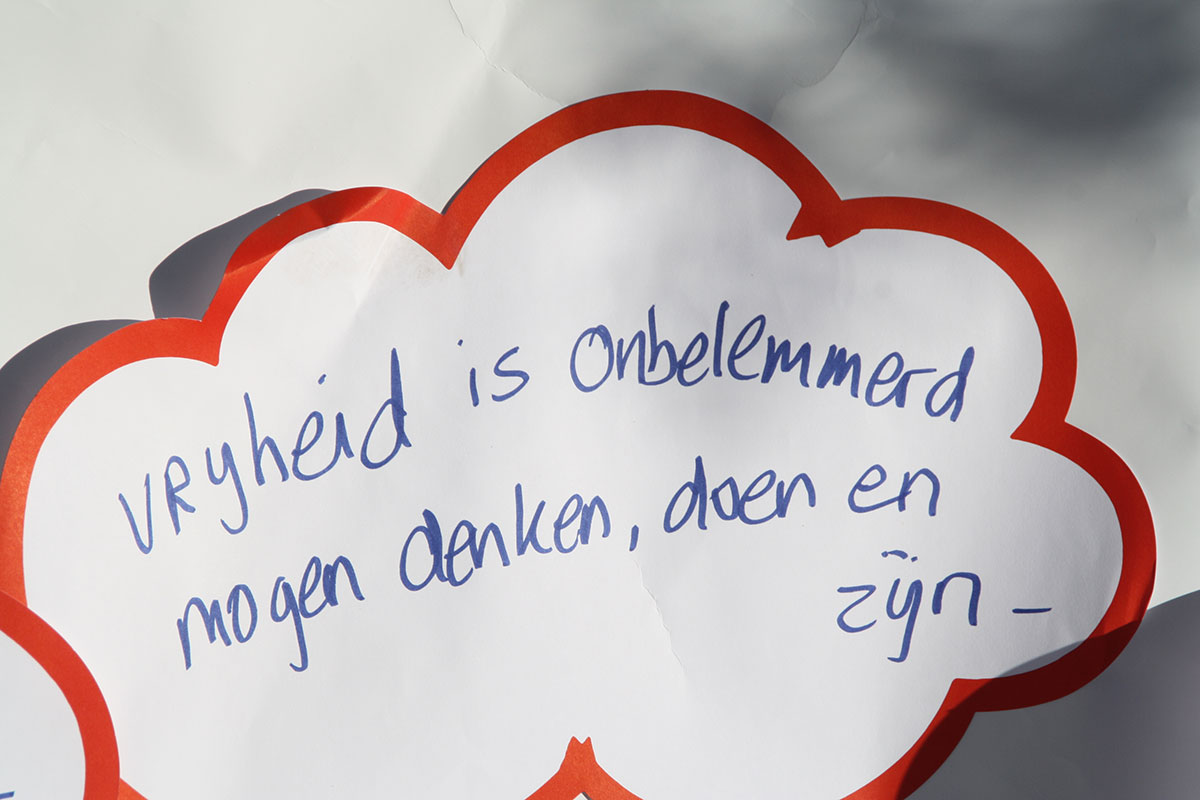 vryheid is onbelemmerd
mogen denken, doen en
zijn –